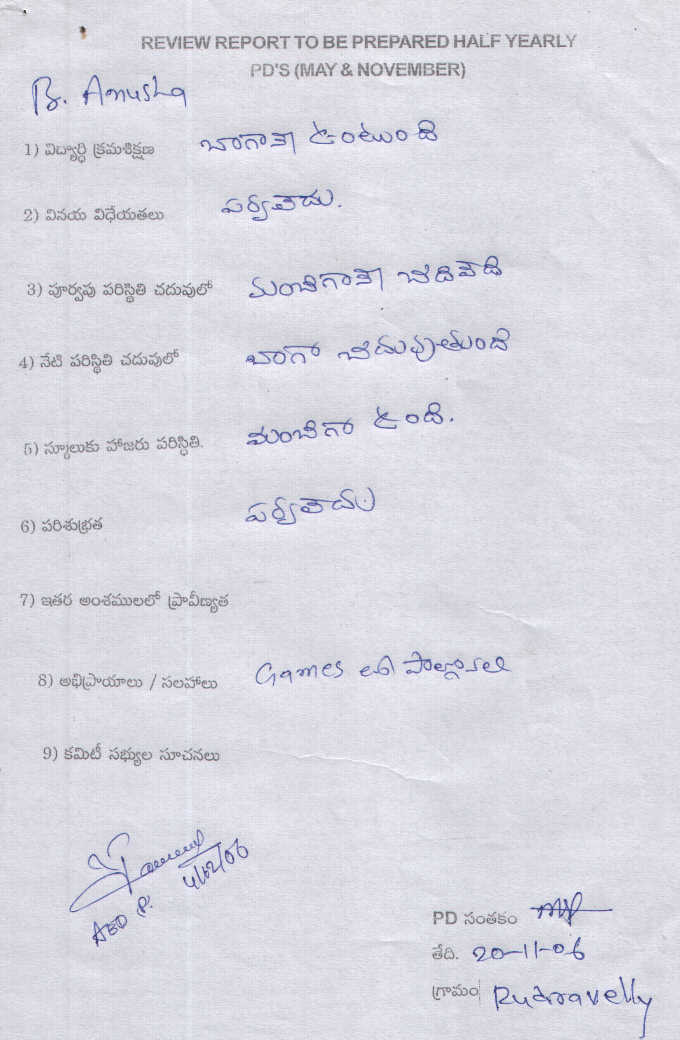 REVIEW REPORT TO BE PREPARED HALF YEARLY
PD'S (MAY & NOVEMBER)
B. Anusha
1) విద్యార్ధి క్రమశిక్షణ బాగానే ఉంటుంది
2) వినయ విధేయతలు పర్వలేదు.
3) పూర్వపు పరిస్థితి చదువులో మంచిగానే చదివేది
4) నేటి పరిస్థితి చదువులో బాగా చదువుతుంది
5) స్కూలుకు హాజరు పరిస్థితి. మంచిగా ఉంది.
6) పరిశుభ్రత పర్వలేదు
7) ఇతర అంశములలో ప్రావీణ్యత
8) అభిప్రాయాలు / సలహాలు Games లో పాల్గొనాలి
9) కమిటీ సభ్యుల సూచనలు
4/12/06
PD సంతకం
తేది. 20-11-06
గ్రామం Rudravelly